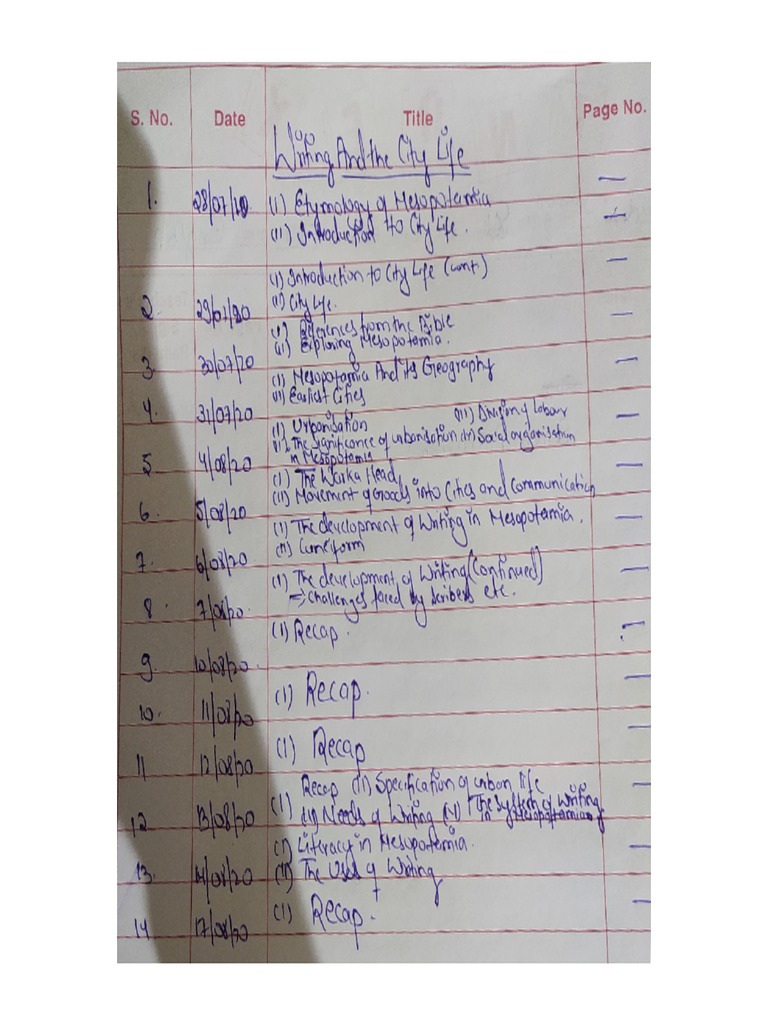 S. No. Date Title Page No.
Writing And the City Life
1. 28/07/20 (i) Etymology of Mesopotamia —
(ii) Introduction to City Life. —
(i) Introduction to City Life (cont.) —
2. 29/07/20 (ii) City Life.
(i) References from the Bible —
3. 30/07/20 (ii) Exploring Mesopotamia.
(i) Mesopotamia And its Geography —
4. 31/07/20 (ii) Earliest Cities
(i) Urbanisation (iii) Division of Labour —
(ii) The significance of urbanisation in Social organisation
5 4/08/20 in Mesopotamia
(i) The Warka Head —
6. 5/08/20 (ii) Movement of Goods into Cities and Communication
(i) The development of Writing in Mesopotamia. —
7. 6/08/20 (ii) Cuneiform
(i) The development of Writing (continued) —
8. 7/08/20. => challenges faced by scribers etc.
(i) Recap. —
9 10/08/20.
10. 11/08/20 (i) Recap. —
11 12/08/20 (i) Recap —
(i) Recap (ii) Specification of urban life —
12 13/08/20 (iii) Needs of Writing (iv) The system of Writing
in Mesopotamia
(i) Literacy in Mesopotamia. —
13. 14/08/20 (ii) The Uses of Writing
14 17/08/20 (i) Recap. —